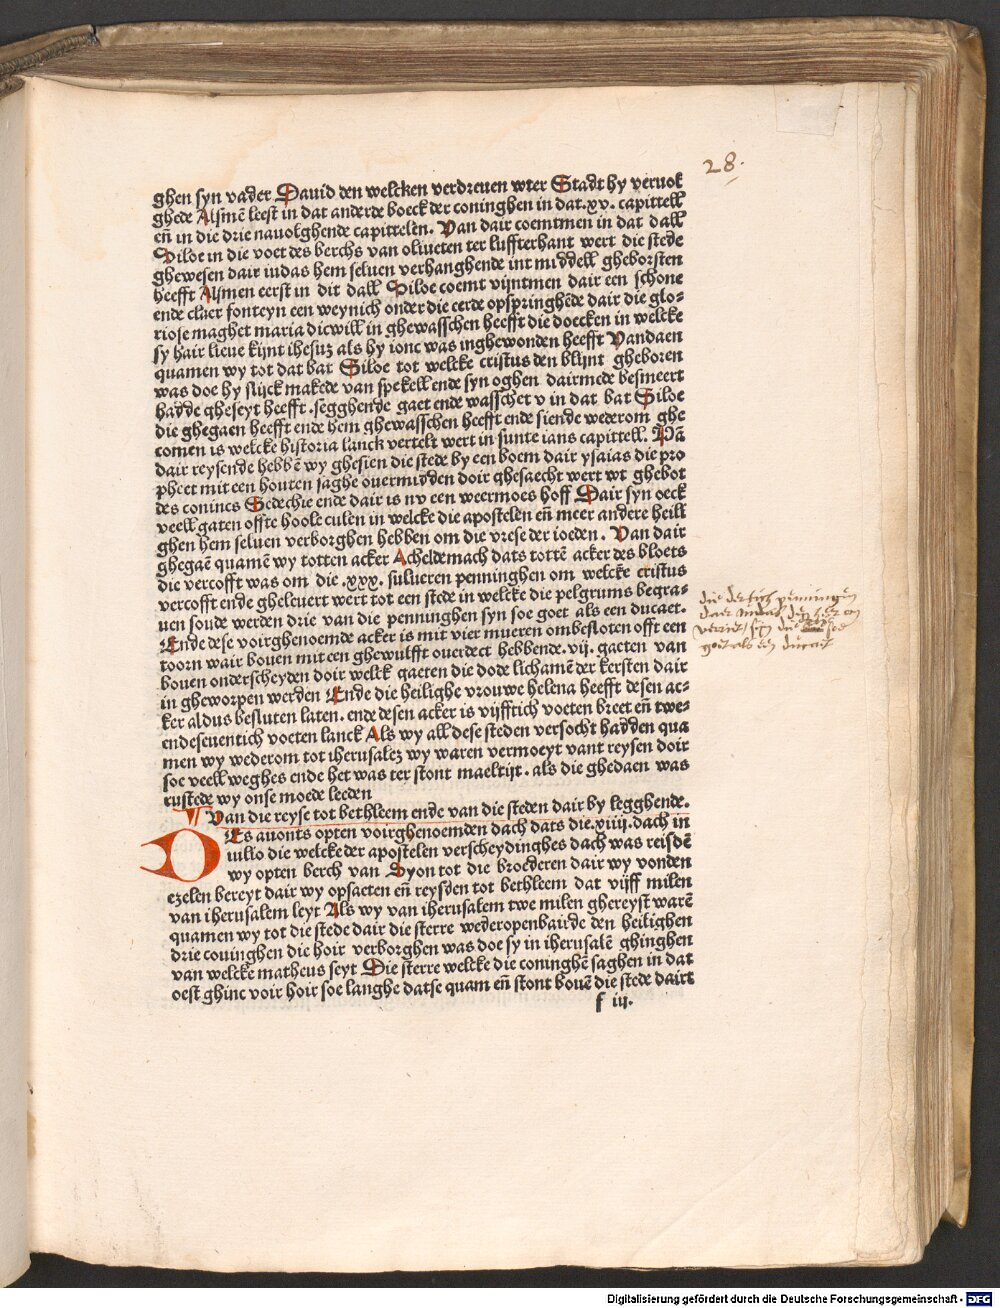 28.
ghen syn vader Dauid den welcken verdreuen wter Stadt hy veruol
ghede Alsmē leest in dat anderde boeck der coninghen in dat.xv. capittell
eñ in die drie nauolghende capittelen. Van dair coemtmen in dat dall
Siloe in die voet des berchs van oliueten ter luffterhant wert die stede
ghewesen dair iudas hem seluen verhanghende int middell gheborsten
heefft Alsmen eerst in dit dall Siloe coemt vijntmen dair een schone
ende claer fonteyn een weynich onder die eerde opspringhēde dair die glo-
riose maghet maria dicwill in ghewasschen heefft die doecken in welcke
sy hair lieue kijnt ihesuz als hy ionc was inghewonden heefft Vandaen
quamen wy tot dat bat Siloe tot welcke cristus den blijnt gheboren
was doe hy slijck makede van spekell ende syn oghen dairmede besmeert
hadde gheseyt heefft .segghende gaet ende wasschet v in dat bat Siloe
die ghegaen heefft ende hem ghewasschen heefft ende siende wederom ghe
comen is welcke historia lanck vertelt wert in sunte ians capittell. Vā
dair reysende hebbē wy ghesien die stede by een boem dair ysaias die pro
pheet mit een houten saghe ouermidden doir ghesaecht wert wt ghebot
des conincs Sedechie ende dair is nv een weermoes hoff Dair syn oeck
veell gaten offte hoole culen in welcke die apostelen eñ meer andere heill
ghen hem seluen verborghen hebben om die vrese der ioeden. Van dair
ghegaē quamē wy totten acker Acheldemach dats tottē acker des bloets
die vercofft was om die .xxx. sulueren penninghen om welcke cristus
vercofft ende gheleuert wert tot een stede in welcke die pelgrums begra-
uen soude werden drie van die penninghen syn soe goet als een ducaet.
Ende dese voirghenoemde acker is mit vier mueren ombesloten offt een
toorn wair bouen mit een ghewulfft ouerdect hebbende.vij. gaeten van
bouen onderscheyden doir welck gaeten die dode lichamē der kersten dair
in gheworpen werden Ende die heilighe vrouwe helena heefft desen ac-
ker aldus besluten laten. ende desen acker is vijfftich voeten breet eñ twe-
endeseuentich voeten lanck Als wy all dese steden versocht hadden qua
men wy wederom tot iherusalez wy waren vermoeyt vant reysen doir
soe veell weghes ende het was ter stont maeltijt. als die ghedaen was
rustede wy onse moede leeden
¶ Van die reyse tot bethleem ende van die steden dair by legghende.
DEs auonts opten voirghenoemden dach dats die.xiiij.dach in
iulio die welcke der apostelen verscheydinghes dach was reisdē
wy opten berch van Syon tot die broederen dair wy vonden
ezelen bereyt dair wy opsaeten eñ reysden tot bethleem dat vijff milen
van iherusalem leyt Als wy van iherusalem twe milen ghereyst warē
quamen wy tot die stede dair die sterre wederopenbairde den heilighen
drie couinghen die hoir verborghen was doe sy in iherusalē ghinghen
van welcke matheus seyt Die sterre welcke die coninghē saghen in dat
oest ghinc voir hoir soe langhe datse quam eñ stont bouē die stede dairt
f iij.
die dertich penningen
daer Judas den her on
verriet sin drie soe
goet als een ducait
Digitalisierung gefördert durch die Deutsche Forschungsgemeinschaft - DFG